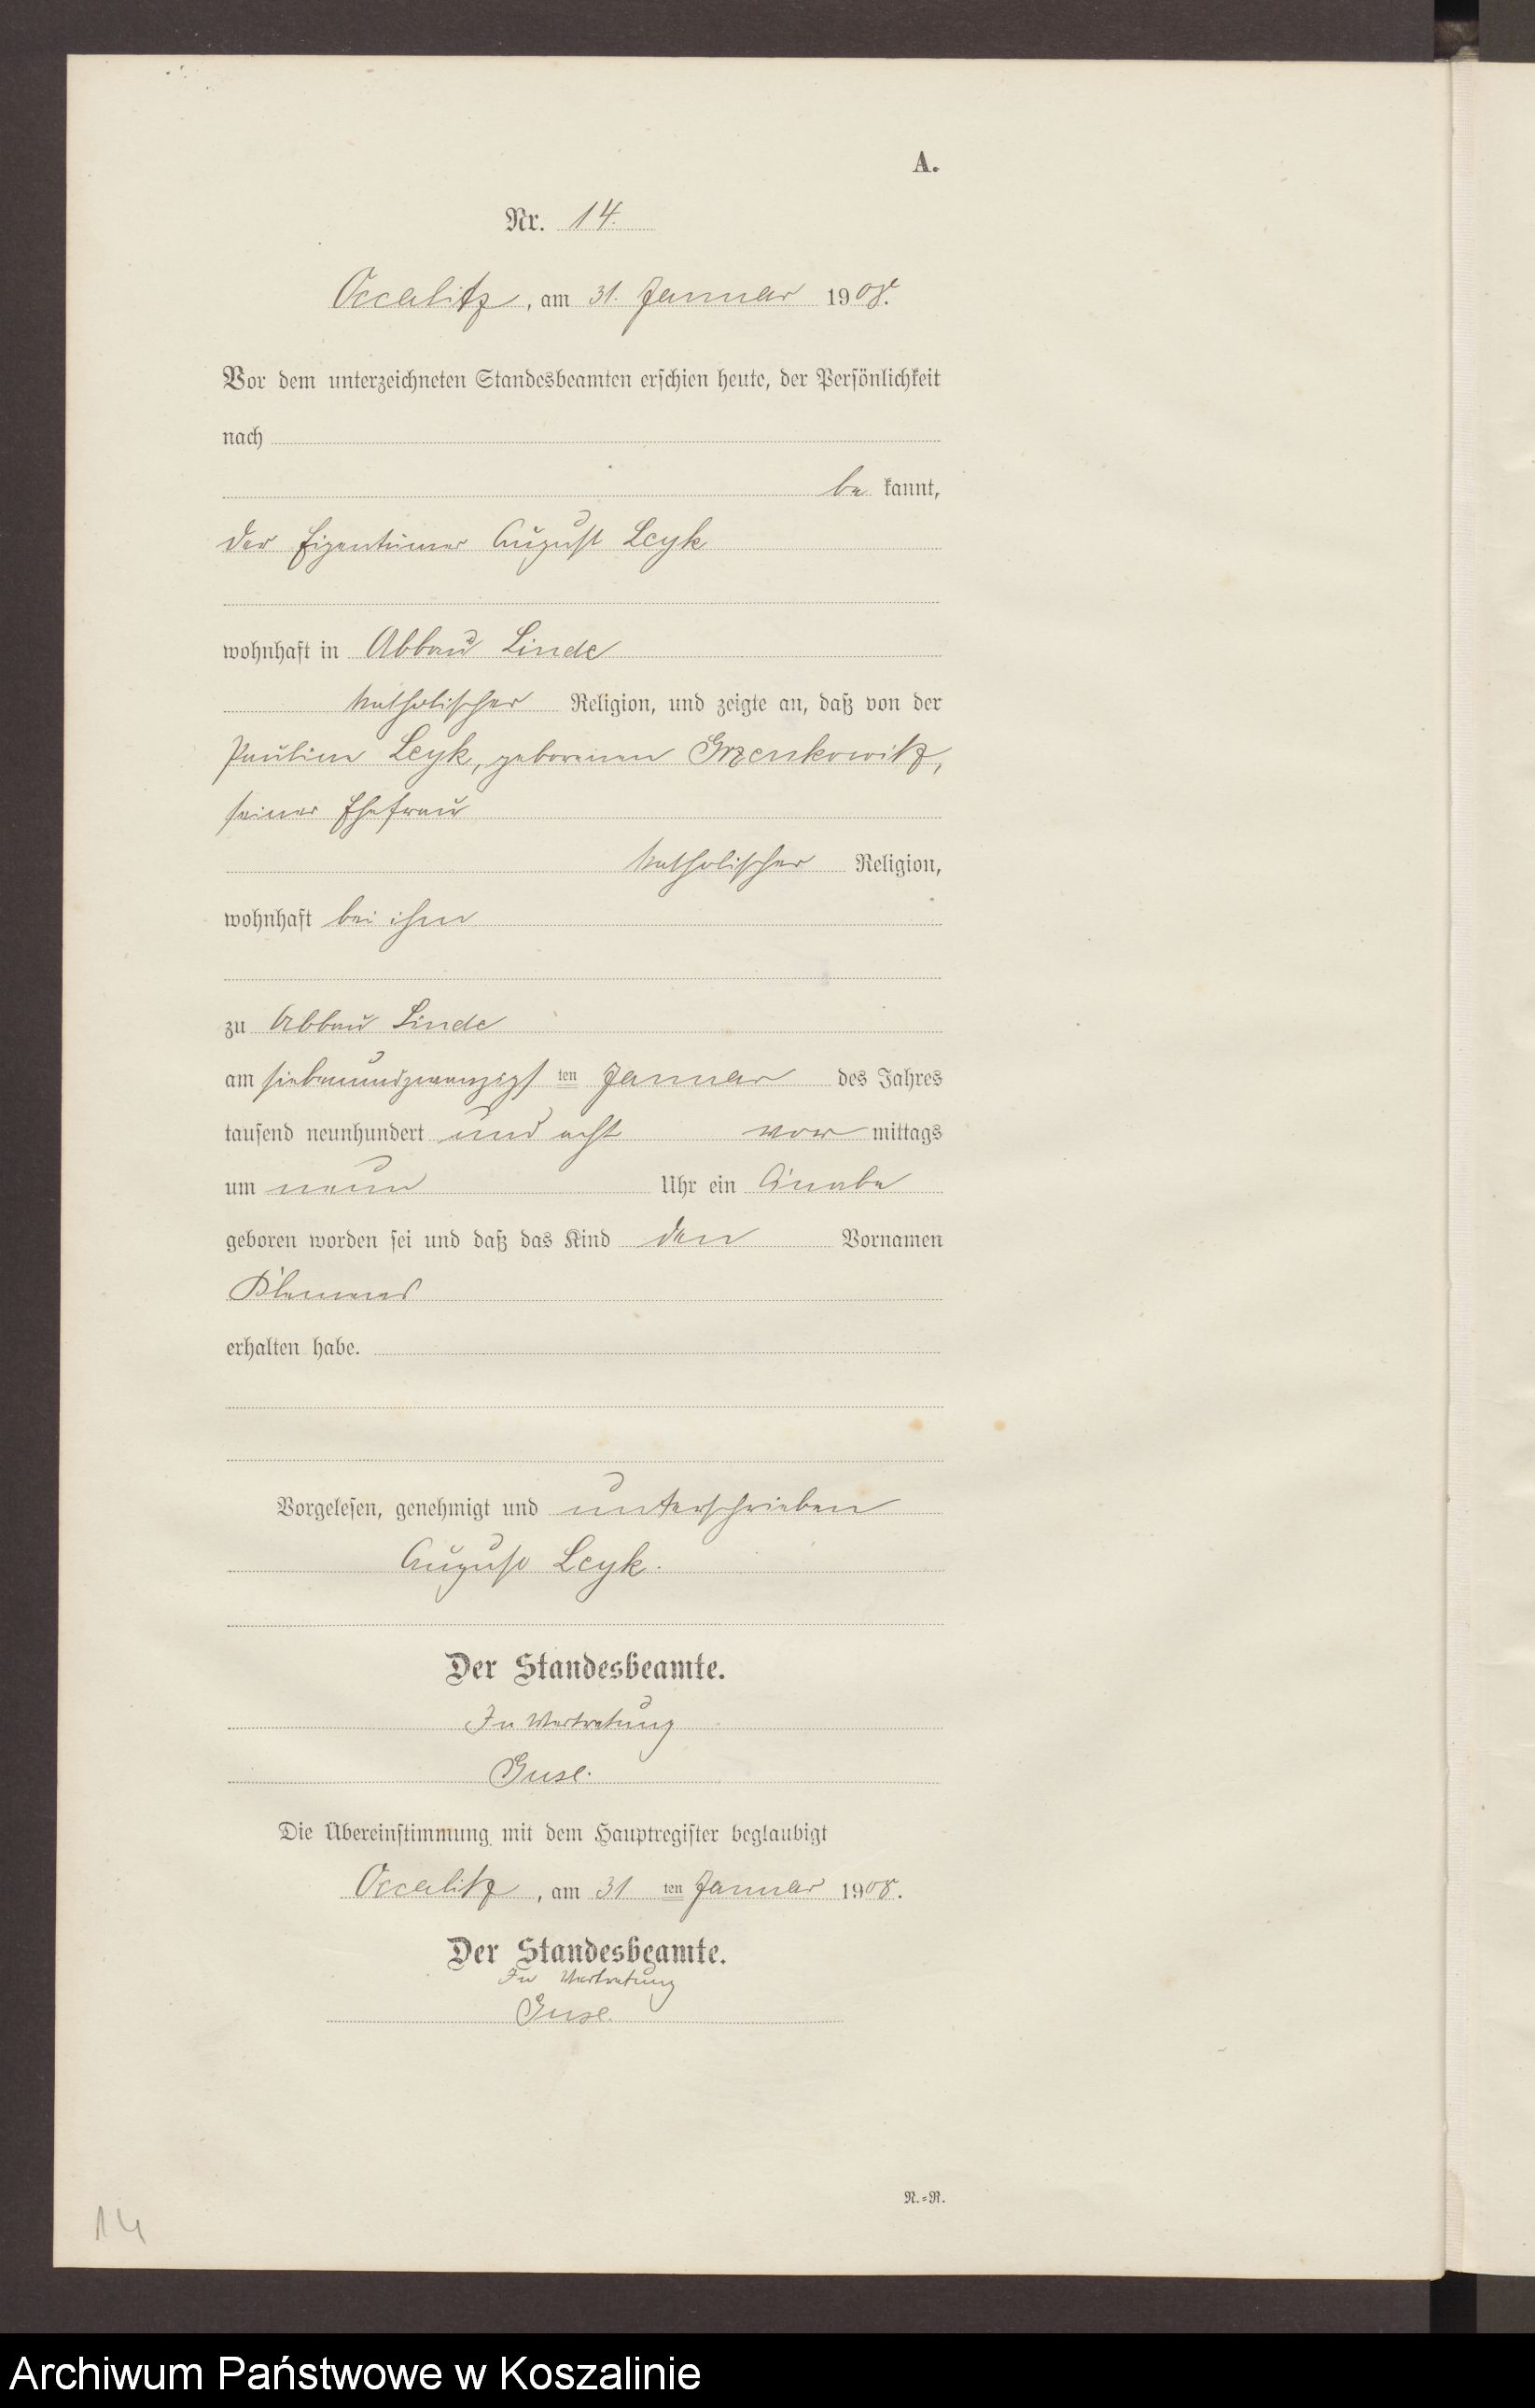 A.
Nr. 14.
Occalitz, am 31. Januar 1908.
Vor dem unterzeichneten Standesbeamten erschien heute, der Persönlichkeit
nach
be kannt,
der Eigentümer August Leyk
wohnhaft in Abbau Linde
katholischer Religion, und zeigte an, daß von der
Pauline Leyk, geborenen Grzenkowitz,
seiner Ehefrau
katholischer Religion,
wohnhaft bei ihm
zu Abbau Linde
am siebenundzwanzigsten Januar des Jahres
tausend neunhundert und acht vor mittags
um neun Uhr ein Knabe
geboren worden sei und daß das Kind den Vornamen
Klemens
erhalten habe.
Vorgelesen, genehmigt und unterschrieben
August Leyk.
Der Standesbeamte.
In Vertretung
Guse.
Die Übereinstimmung mit dem Hauptregister beglaubigt
Occalitz, am 31 ten Januar 1908.
Der Standesbeamte.
In Vertretung
Guse.
N.=R.
14
Archiwum Państwowe w Koszalinie